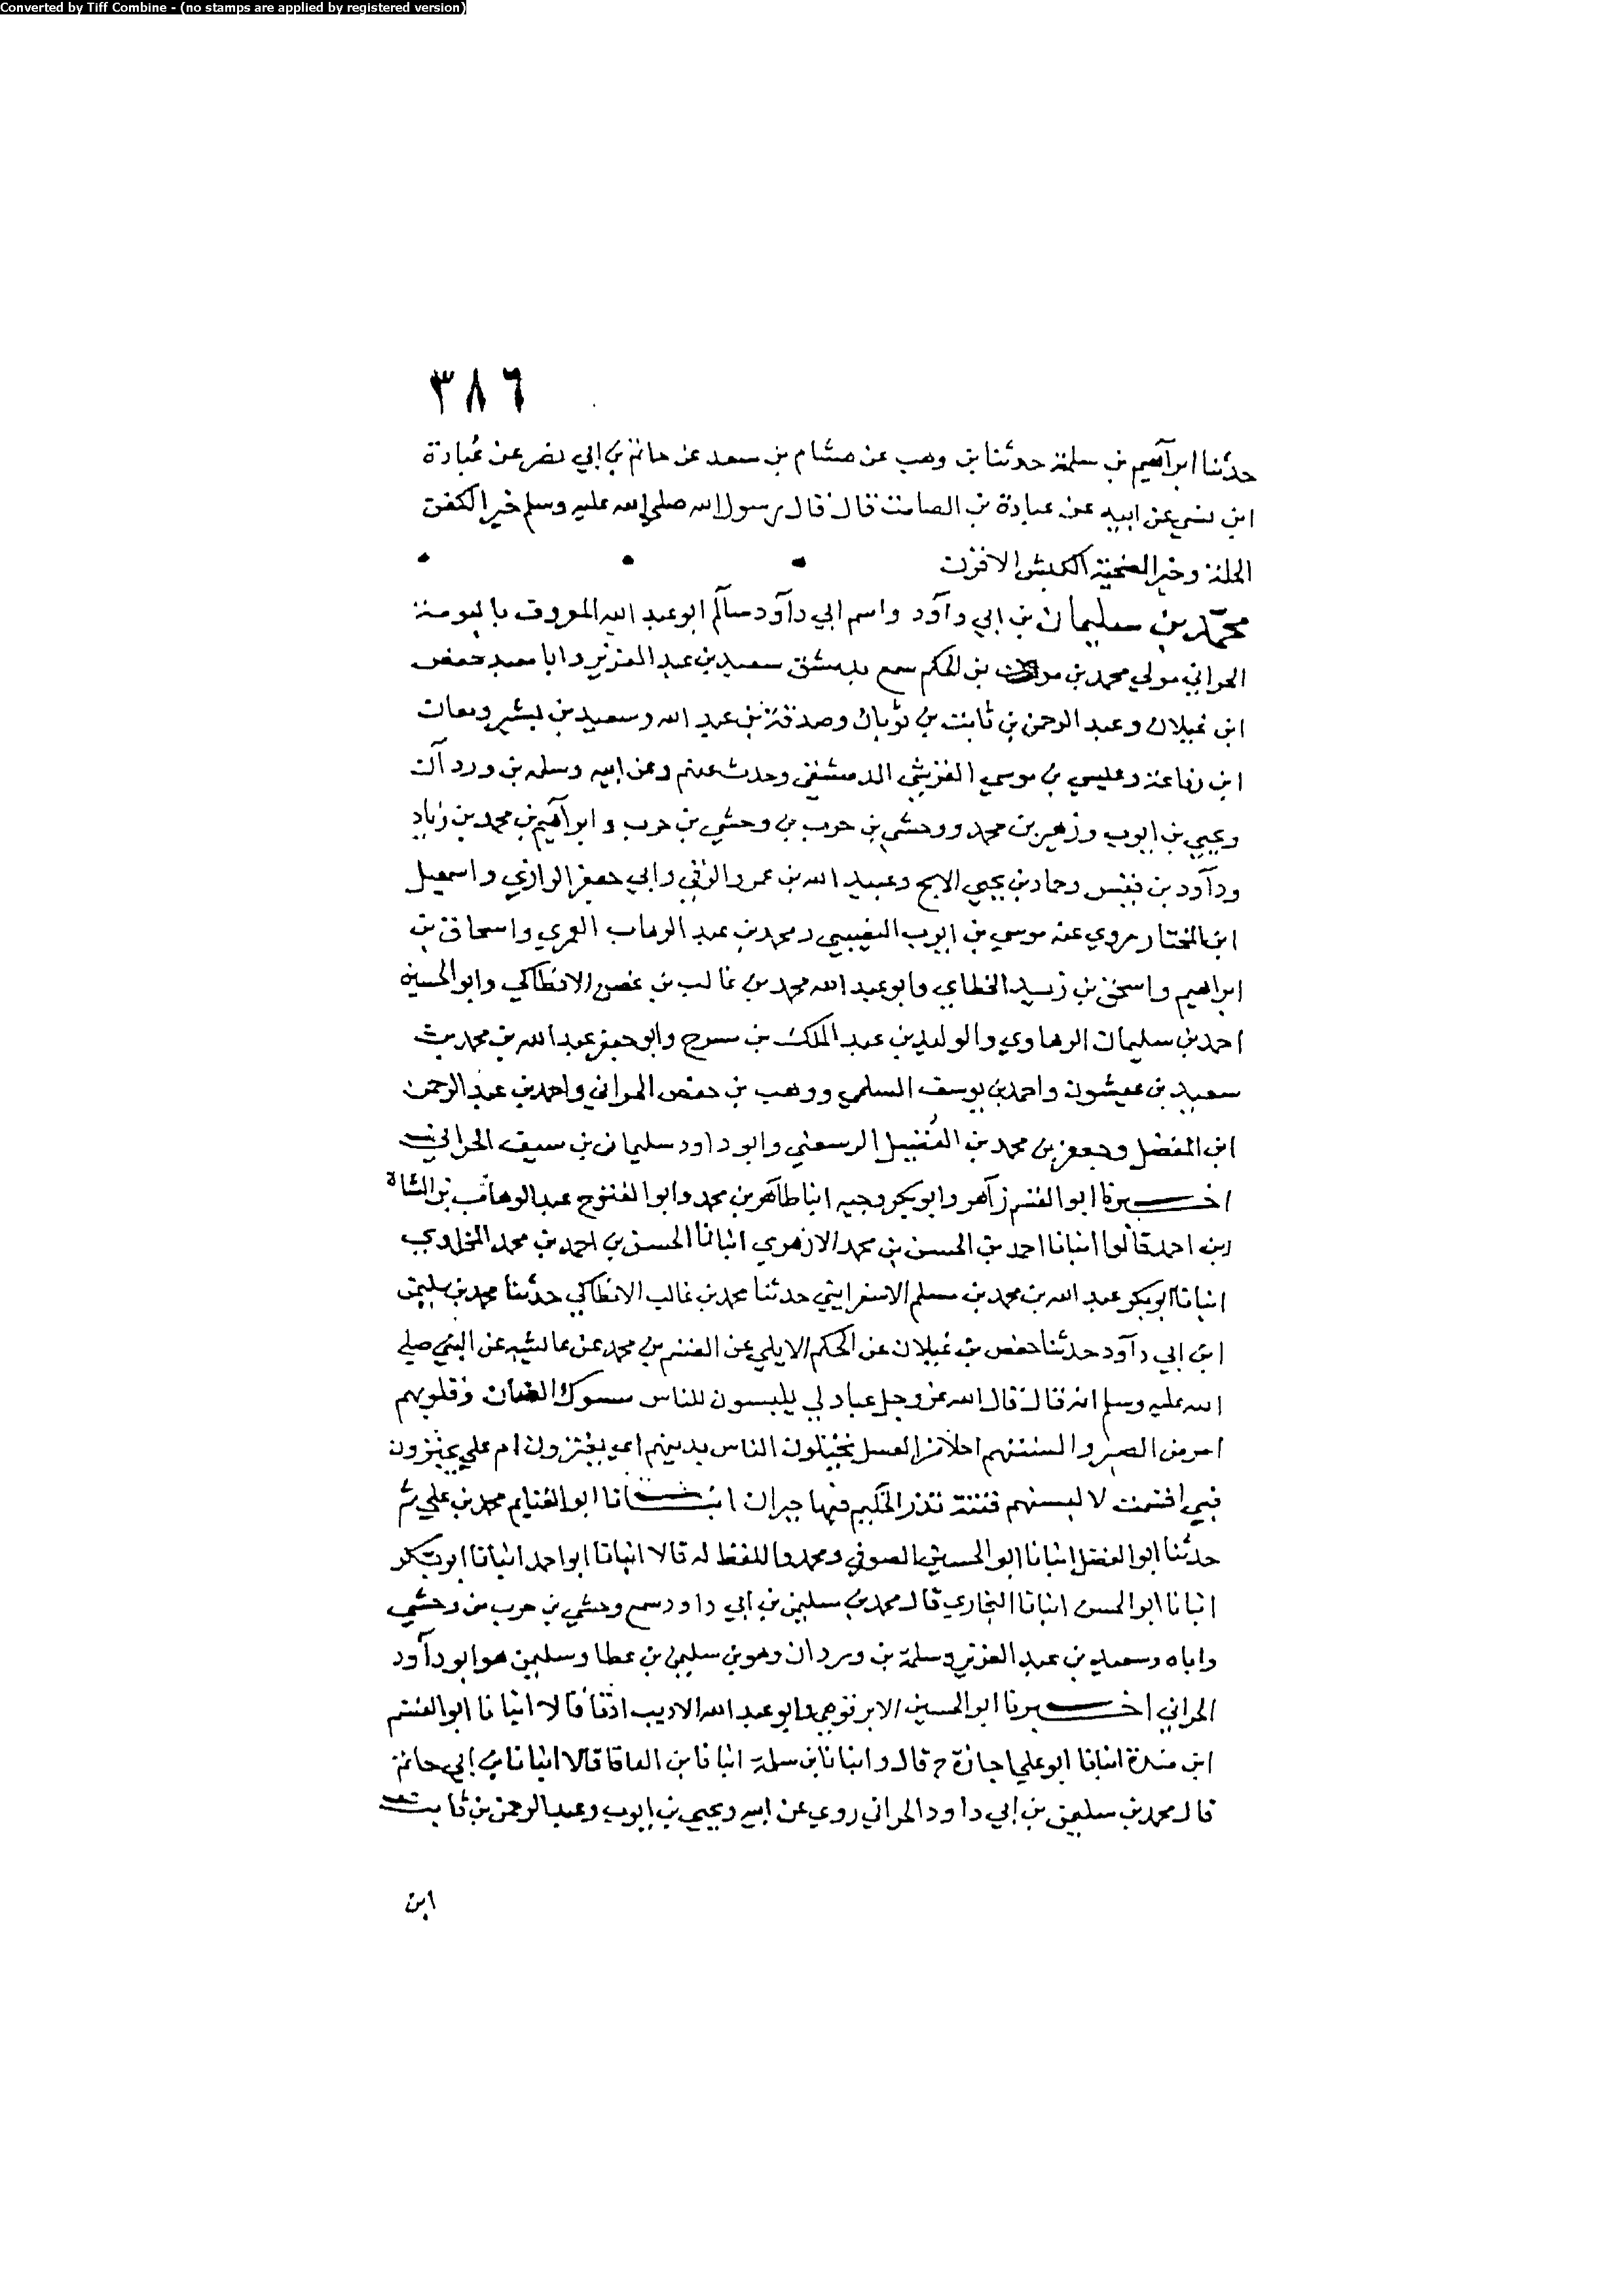 Converted by Tiff Combine - (no stamps are applied by registered version)
٣٨٦
حدثنا ابراهيم بن سلمة حدثنا بن وهب عن هشام بن سعد عن حاتم بن ابي نصر عن عبادة
ابن نسي عن ابيه عن عبادة بن الصامت قال قال رسول الله صلي الله عليه وسلم خير الكفن
الحلة وخير الضحية الكبش الاقرن
محمد بن سليمان بن ابي داود واسم ابي داود سالم ابو عبد الله المعروف بالبومة
الحراني مولي محمد بن مروان بن الحكم سمع بدمشق سعيد بن عبد العزيز وابا معيد حفص
ابن غيلان وعبد الرحمن بن ثابت بن ثوبان وصدقة بن عبد الله وسعيد بن بشير ومعان
ابن رفاعة وعيسي بن موسي القرشي الدمشقي وحدث عنهم وعن ابيه وسلمه بن وردان
ويحيي بن ايوب وزهير بن محمد ووحشي بن حرب بن وحشي بن حرب وابراهيم بن محمد بن زياد
وداود بن قيس وحماد بن يحيي الابح وعبيد الله بن عمرو الرقي وابي جعفر الرازي واسمعيل
ابن المختار روي عنه موسي بن ايوب النصيبي ومحمد بن عبد الوهاب العمري واسحاق بن
ابراهيم واسحق بن زيد الخطابي وابو عبد الله محمد بن غالب بن غصن الانطاكي وابو الحسين
احمد بن سليمان الرهاوي والوليد بن عبد الملك بن مسرح وابو جعفر عبد الله بن محمد بن
سعيد بن عيشون واحمد بن يوسف السلمي ووهب بن حفص الحراني واحمد بن عبد الرحمن
ابن المفضل وجعفر بن محمد بن الفضيل الرسعني وابو داود سليمان بن سيف الحراني
اخبرنا ابو القسم زاهر وابو بكر وجيه ابنا طاهر بن محمد وابو الفتوح عبد الوهاب بن الشاة
ابن احمد قالوا انبانا احمد بن الحسن بن محمد الازهري انبانا الحسن بن احمد بن محمد المخلدي
انبانا ابو بكر عبد الله بن محمد بن مسلم الاسفرايني حدثنا محمد بن غالب الانطاكي حدثنا محمد بن سليمن
ابن ابي داود حدثنا حفص بن غيلان عن الحكم الايلي عن القسم بن محمد عن عائشه عن النبي صلي
الله عليه وسلم انه قال قال الله عز وجل عباد لي يلبسون للناس مسوك الضان وقلوبهم
امر من الصبر والسنتهم احلا من العسل يختلون الناس بدينهم ابي يغترون ام علي يجترون
فبي اقسمت لا لبسنهم فتنة تذر الحكيم فيها حيران انبانا ابو الغنايم محمد بن علي ثم
حدثنا ابو الفضل انبانا ابو الحسين الصوفي ومحمد واللفظ له قالا انبانا ابو احمد انبانا ابو بكر
انبانا ابو الحسن انبانا البخاري قال محمد بن سليمن بن ابي داود سمع وحشي بن حرب بن وحشي
واباه وسعيد بن عبد العزيز وسلمة بن وردان وهو بن سليمن بن عطا وسليمن هو ابو داود
الحراني اخبرنا ابو الحسين الابرقوهي وابو عبد الله الاديب اذنا قالا انبانا ابو القسم
ابن مندة انبانا ابو علي اجازة ح قال وانبانا بن سلمة انبانا بن الفافا قالا انبانا بن ابي حاتم
قال محمد بن سليمن بن ابي داود الحراني روي عن ابيه ويحيي بن ايوب وعبد الرحمن بن ثابت
ابن